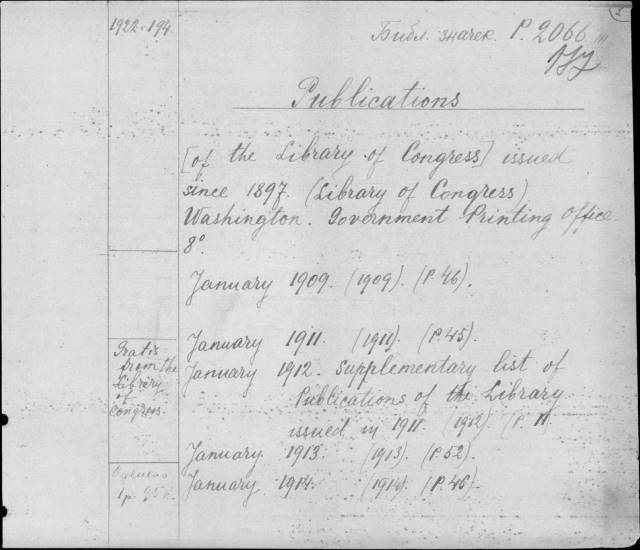 1922-194
Библ. значек. P. 2066
Publications
[of the Library of Congress] issued
since 1897. (Library of Congress)
Washington. Government Printing Office.
8°.
January 1909. (1909). (P. 46).
January 1911. (1911). (P. 45).
Gratis
from the
Library
of
Congress.
January 1912. Supplementary list of
Publications of the Library
issued in 1911. (P. 11.
January 1913. (1913). (P. 52).
January 1914. (1914). (P. 46).
1 р.